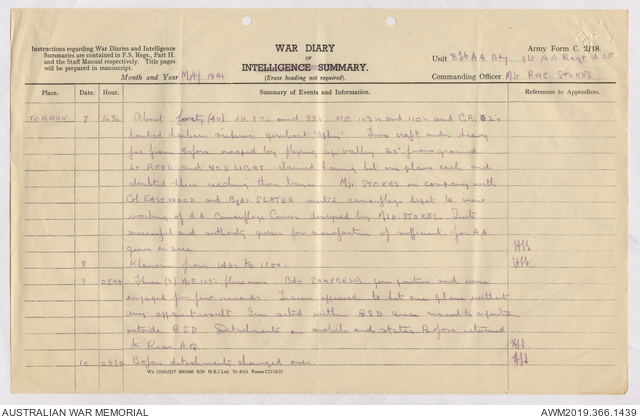 Instructions regarding War Diaries and Intelligence
Summaries are contained in F.S. Regs., Part II.
and the Staff Manual respectively. Title pages
will be prepared in manuscript.
WAR DIARY
or
INTELLIGENCE SUMMARY.
(Erase heading not required).
Army Form C. 2118.
Unit 8 Lt AA Bty
Month and Year MAY 1941
Commanding Officer Mjr STOKES
Place. Date. Hour. Summary of Events and Information. References to Appendices.
TOBRUK 7 1630 About forty (40) JU. 87's and 88's M.E. 109's and 110's and C.R. 32's
bombed harbour gunboat
fire from Bofors escaped by flying up valley 20' from ground
Lt REED and claimed having hit one plane each and
doubted their reaching their home. Mjr STOKES in company with
Col EASTWOOD and Bgdr SLATER visited camouflage depot to view
working of A.A. Camouflage Cover designed by Mjr STOKES. Quite
successful and authority given for manufacture of sufficient for AA
guns in area.
8 Khamsin from 1400 to 1800.
9 0840 Three (3) M.E. 109's flew over Bdr CAMPBELL'S gun position and were
engaged for five seconds. Tracer appeared to hit one plane without
any apparent result. Gun sited within B.S.D. area moved to position
outside B.S.D. Detachments on mobile and static Bofors returned
to Rear A.Q.
10 0830 Bofors detachments changed over.
AUSTRALIAN WAR MEMORIAL
AWM2019.366.1439